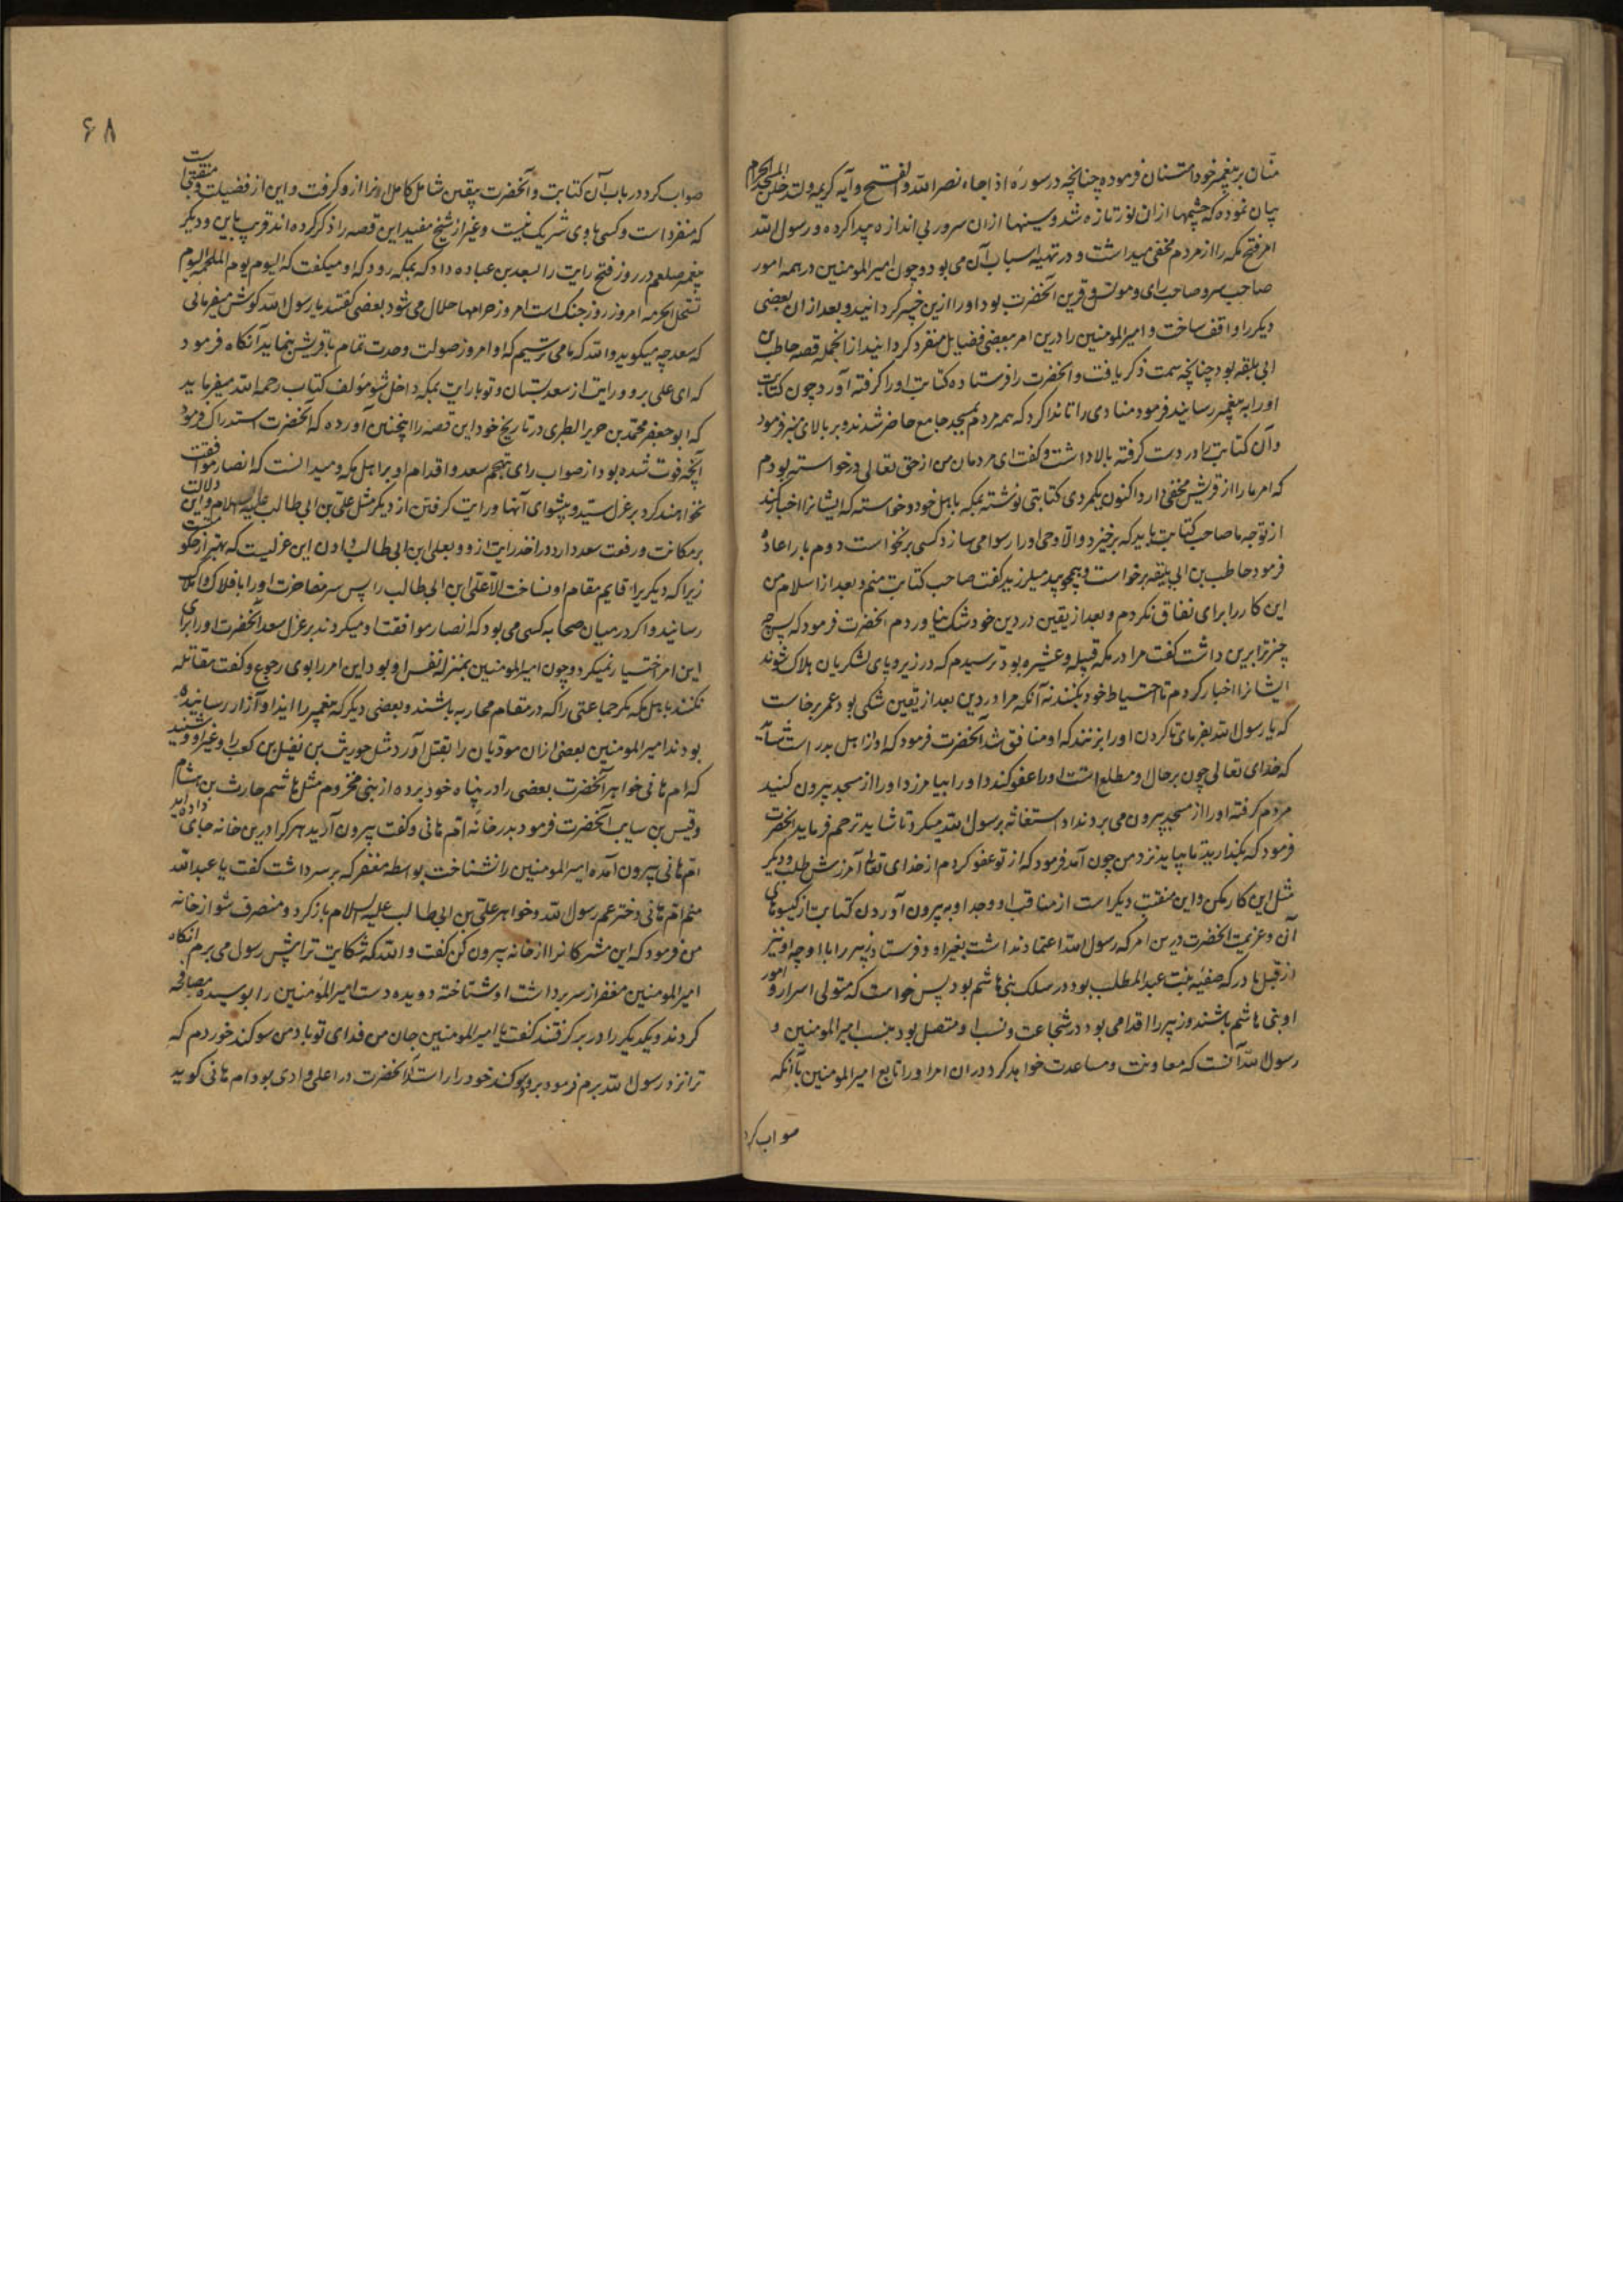 منّان بر پیغمبر خود امتنان فرموده چنانچه در سوره اذا جاء نصر الله و الفتح و آیه کریمه لتدخلن المسجد الحرام
بیان نموده که چشمها از ان نور تازه شد و سینها از ان سرور بی اندازه پیدا کرده و رسول الله
امر فتح مکه را از مردم مخفی میداشت و در تهیه اسباب آن می بود و چون امیر المومنین در همه امور
صاحب سر و صاحب رای و مونس و قرین آنحضرت بود او را ازین خبر کردانید و بعد از ان بعضی
دیکر را واقف ساخت و امیر المومنین را درین امر ببعضی فضایل منفرد کردانید از انجمله قصه حاطب بن
ابی بلتقه بود چنانچه سمت ذکر یافت و انحضرت را فرستاده کتابت او را کرفته آورد چون کتابت
او را به پیغمبر رسانیند فرمود منادی را تا ندا کرد که همه مردم بمسجد جامع حاضر شدند و بر بالای منبر فرمود
و آن کتابت را در دست کرفته بالا داشت و کفت ای مردمان من از حق تعالی درخواسته بودم
که امر ما را از قریش مخفی دارد اکنون یکمردی کتابتی نوشته بمکه باهل خود و خواسته که ایشانرا اخبار کند
از توجه ما صاحب کتابت باید که برخیزد و الا وحی او را رسوا می سازد کسی برنخواست دوم بار اعاده
فرمود حاطب بن ابی بلیقه برخواست و همچو بید میلرزید کفت صاحب کتابت منم و بعد از اسلام من
این کار را برای نفاق نکردم و بعد از یقین در دین خود شک نیاوردم انحضرت فرمود که پس چه
چیز ترا برین داشت کفت مرا در مکه قبیله و عشیره بود ترسیدم که در زیر و پای لشکریان هلاک شوند
ایشانرا اخبار کردم تا احتیاط خود بکنند نه آنکه مرا در دین بعد از یقین شکی بود عمر برخاست
که یا رسول الله بفرمای تا کردن او را بزنند که او منافق شد آنحضرت فرمود که او از اهل بدر است
که خدای تعالی چون بر حال او مطلع است او را عفو کند و او را بیامرزد او را از مسجد بیرون کنید
مردم کرفته او را از مسجد بیرون می بردند او استغاثه برسول الله میکرد تا شاید ترحم فرماید انحضرت
فرمود که بکذارید تا بیاید نزد من چون آمد فرمود که از تو عفو کردم از خدای تعالی آمرزش طلب و دیکر
مثل این کار مکن و این منقبت دیکر است از مناقب او وجد او به بیرون آوردن کتابت از کیسوهای
آن و عزیمت انحضرت درین امر که رسول الله اعتماد نداشت بغیر او و فرستاد زبیر را با او چه او نیز
از قبل مادر که صفیه بنت عبد المطلب بود در سلک بنی هاشم بود پس خواست که متولی اسرار و امور
او بنی هاشم باشند و زبیر را اقدامی بود در شجاعت و نسبا و متصل بود بنسب امیر المومنین و
رسول الله دانست که معاونت و مساعدت خواهد کرد در ان امر او را تابع امیر المومنین با آنکه
صواب کرد
۶۸
صواب کرد در باب آن کتابت و آنحضرت یقین شامل کامل او را از و کرفت و این از فضیلت و منقبتیست
که منفرد است و کسی با وی شریک نیست و غیر از شیخ مفید این قصه را ذکر کرده اند قریب باین و دیکر
پیغمبر صلعم در روز فتح رایت را بسعد بن عباده داد که بمکه رود که او میکفت که الیوم یوم الملحمه الیوم
تستحل الحرمه امروز روز جنک است امروز حرامها حلال می شود بعضی کفتند یا رسول الله کوش میفرمائی
که سعد چه میکوید والله که ما می ترسیم که او امروز صولت و حدت تمام با قریش بنماید آنکاه فرمود
که ای علی برو و رایت از سعد بستان و تو با رایت بمکه داخل شو مؤلف کتاب رحمه الله میفرماید
که ابو جعفر محمد بن جریر الطبری در تاریخ خود این قصه را اینچنین آورده که آنحضرت استدراک فرمود
آنچه فوت شده بود از صواب رای تهجم سعد و اقدام او بر اهل مکه و میدانست که انصار موافقت
نخواهند کرد بر عزل سید و پیشوای آنها و رایت کرفتن از دیکر مثل علی بن ابی طالب علیه السلام و این دلالت
بر مکانت و رفعت سعد دارد در اخذ رایت از و و بعلی ابن ابی طالب دادن این عزلیست که بهتر از حکومتست
زیرا که دیکریرا قایم مقام او نساخت الا علی ابن ابی طالب را پس سر مفاخرت او را بافلاک و املاک
رسانید و اکر در میان صحابه کسی می بود که انصار موافقت او میکردند بر عزل سعد آنحضرت او را برای
این امر اختیار نمیکرد و چون امیر المومنین بمنزله نفس او بود این امر را بوی رجوع و کفت مقاتله
نکنند با اهل مکه مکر جماعتی را که در مقام محاربه باشند و بعضی دیکر که پیغمبر را ایذا و آزار رسانیده
بودند امیر المومنین بعضی از ان موذیان را بقتل آورد مثل حویرث بن نفیل بن کعب را و غیر او و شنید
که ام هانی خواهر آنحضرت بعضی را در پناه خود برده از بنی مخزوم مثل هاشم حارث بن هشام
و قیس بن سایب آنحضرت فرمود بدر خانه ام هانی و کفت بیرون آرید هر کرا درین خانه جای داده اید
ام هانی بیرون آمده امیر المومنین را نشناخت بواسطه مغفر که بر سر داشت کفت یا عبد الله
منم ام هانی دختر عم رسول الله و خواهر علی بن ابی طالب علیه السلام باز کرد و منصرف شو از خانه
من فرمود که این مشرکانرا از خانه بیرون کن کفت والله که شکایت ترا پیش رسول می برم انکاه
امیر المومنین مغفر از سر برداشت او شناخته دویده دست امیر المؤمنین را بوسیده مصافحه
کردند و یکدیکر را در بر کرفتند کفت یا امیر المومنین جان من فدای تو باد من سوکند خوردم که
ترا نزد رسول الله برم فرمود برو سوکند خود را راست کن آنحضرت در اعلی وادی بود ام هانی کوید